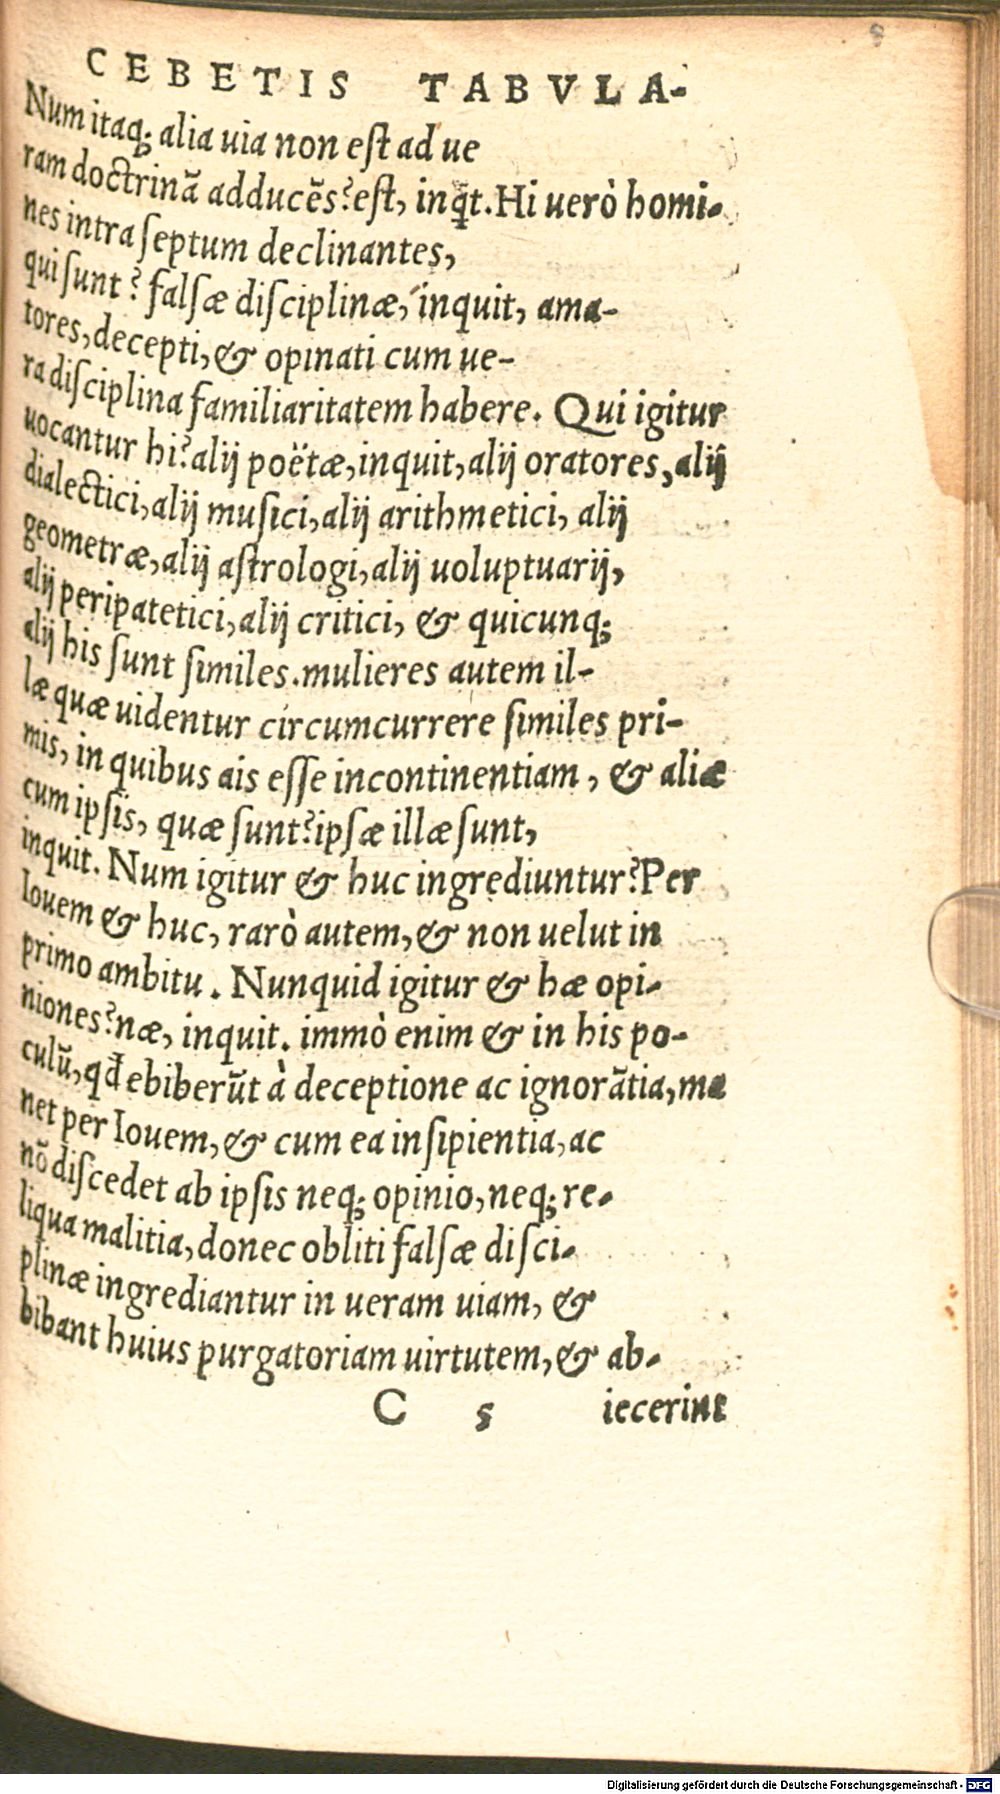 8
CEBETIS TABVLA-
Num itaq; alia uia non est ad ue
ram doctrinā adducēs? est, inq̃t. Hi uerò homi-
nes intra septum declinantes,
qui sunt? falsæ disciplinæ, inquit, ama-
tores, decepti, & opinati cum ue-
ra disciplina familiaritatem habere. Qui igitur
uocantur hi? alij poëtæ, inquit, alij oratores, alij
dialectici, alij musici, alij arithmetici, alij
geometræ, alij astrologi, alij uoluptuarij,
alij peripatetici, alij critici, & quicunq;
alij his sunt similes. mulieres autem il-
læ quæ uidentur circumcurrere similes pri-
mis, in quibus ais esse incontinentiam, & aliæ
cum ipsis, quæ sunt? ipsæ illæ sunt,
inquit. Num igitur & huc ingrediuntur? Per
Iouem & huc, rarò autem, & non uelut in
primo ambitu. Nunquid igitur & hæ opi-
niones? næ, inquit. immò enim & in his po-
culū, qđ ebiberūt à deceptione ac ignorātia, ma
net per Iouem, & cum ea insipientia, ac
nō discedet ab ipsis neq; opinio, neq; re-
liqua malitia, donec obliti falsæ disci-
plinæ ingrediantur in ueram uiam, &
bibant huius purgatoriam uirtutem, & ab-
C 5 iecerint
Digitalisierung gefördert durch die Deutsche Forschungsgemeinschaft - DFG